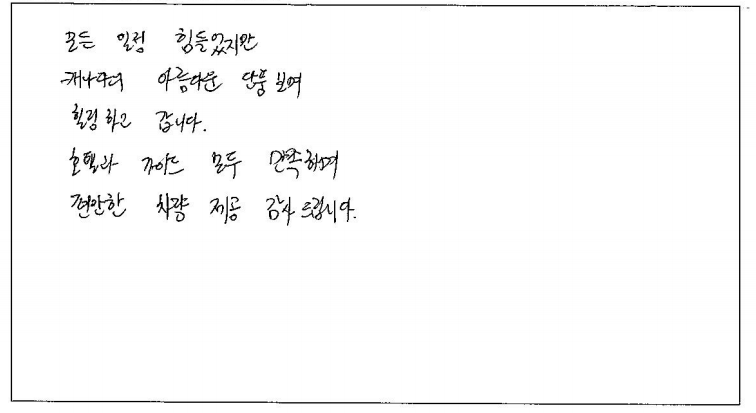 모든 일정 힘들었지만
캐나다의 아름다운 단풍 보며
힐링하고 갑니다.
호텔과 가이드 모두 만족하며
편안한 차량 제공 감사드립니다.